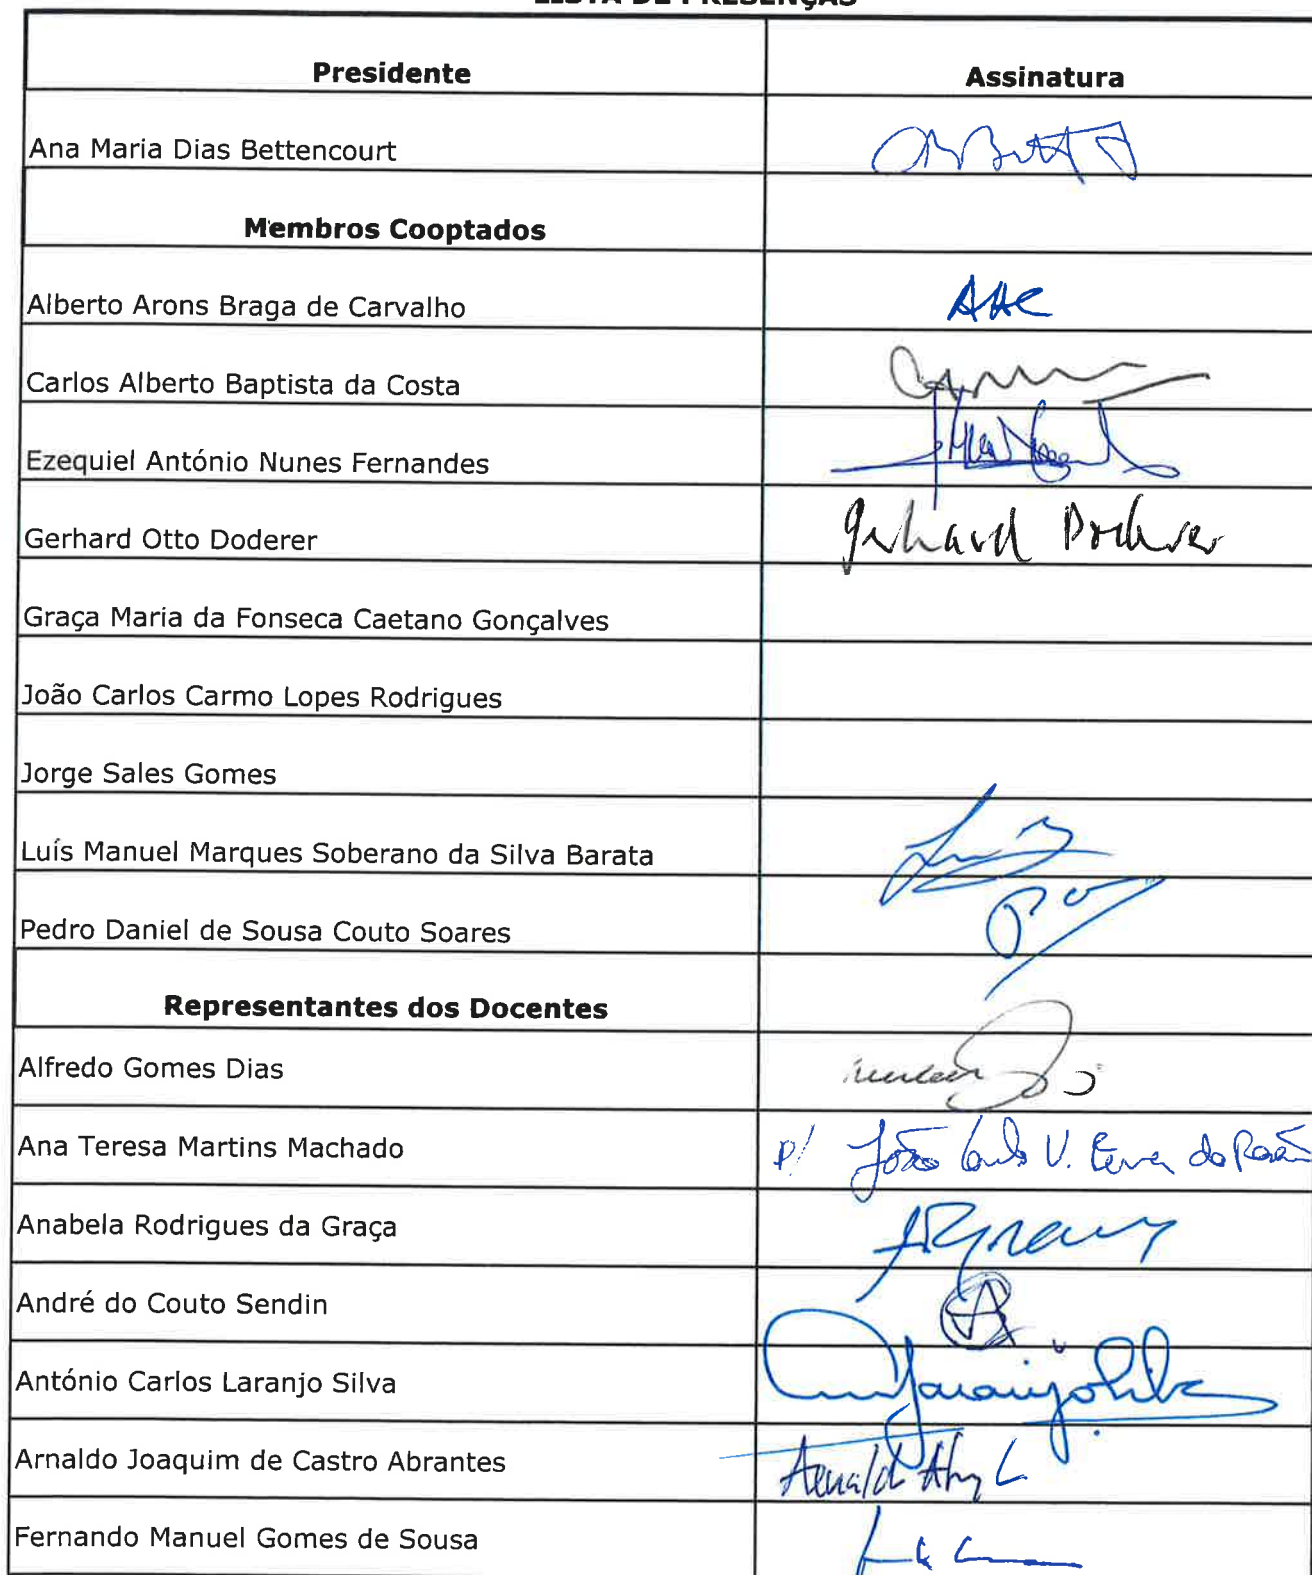 LISTA DE PRESENÇAS
Presidente Assinatura
Ana Maria Dias Bettencourt
Membros Cooptados
Alberto Arons Braga de Carvalho AAC
Carlos Alberto Baptista da Costa
Ezequiel António Nunes Fernandes
Gerhard Otto Doderer Gerhard Doderer
Graça Maria da Fonseca Caetano Gonçalves
João Carlos Carmo Lopes Rodrigues
Jorge Sales Gomes
Luís Manuel Marques Soberano da Silva Barata
Pedro Daniel de Sousa Couto Soares
Representantes dos Docentes
Alfredo Gomes Dias
Ana Teresa Martins Machado P/ João
Anabela Rodrigues da Graça
André do Couto Sendin
António Carlos Laranjo Silva
Arnaldo Joaquim de Castro Abrantes
Fernando Manuel Gomes de Sousa